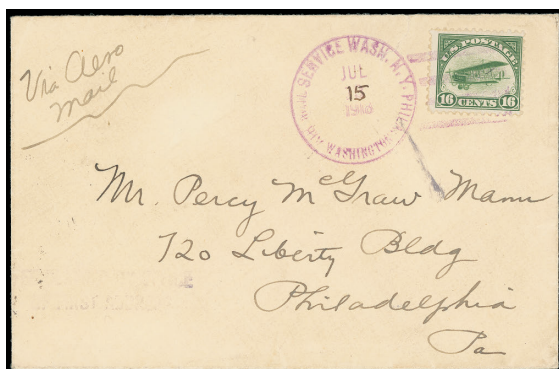 Via Aero
Mail
AIR MAIL SERVICE WASH. N.Y. PHILA.
JUL
15
1918
WASHINGTON
U.S. POSTAGE
16 CENTS 16
Mr. Percy McGraw Mann
720 Liberty Bldg
Philadelphia
Pa